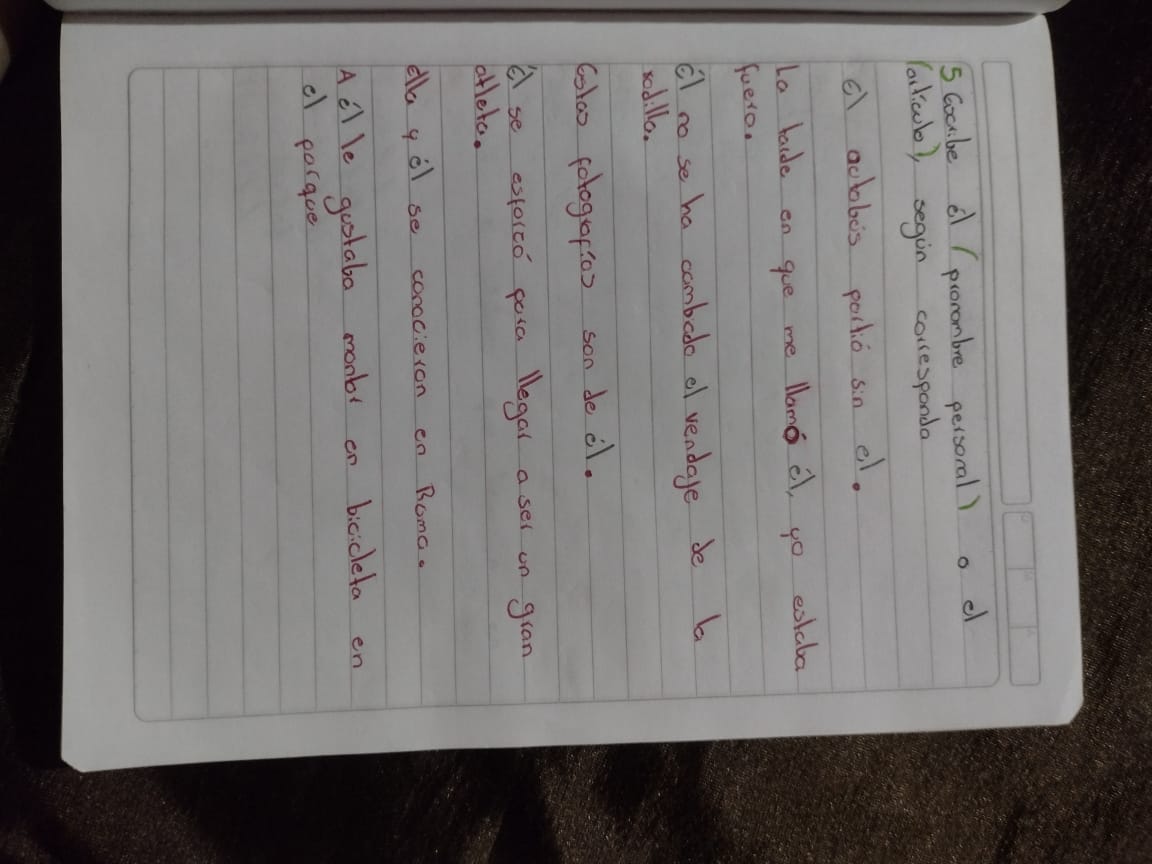 5 Escribe él (pronombre personal) o el
(artículo), según corresponda
El autobús partió sin el.
La tarde en que me llamó él, yo estaba
fuera.
Él no se ha cambiado el vendaje de la
rodilla.
Estas fotografías son de él.
Él se esforzó para llegar a ser un gran
atleta.
ella y él se conocieron en Roma.
A él le gustaba montar en bicicleta en
el parque